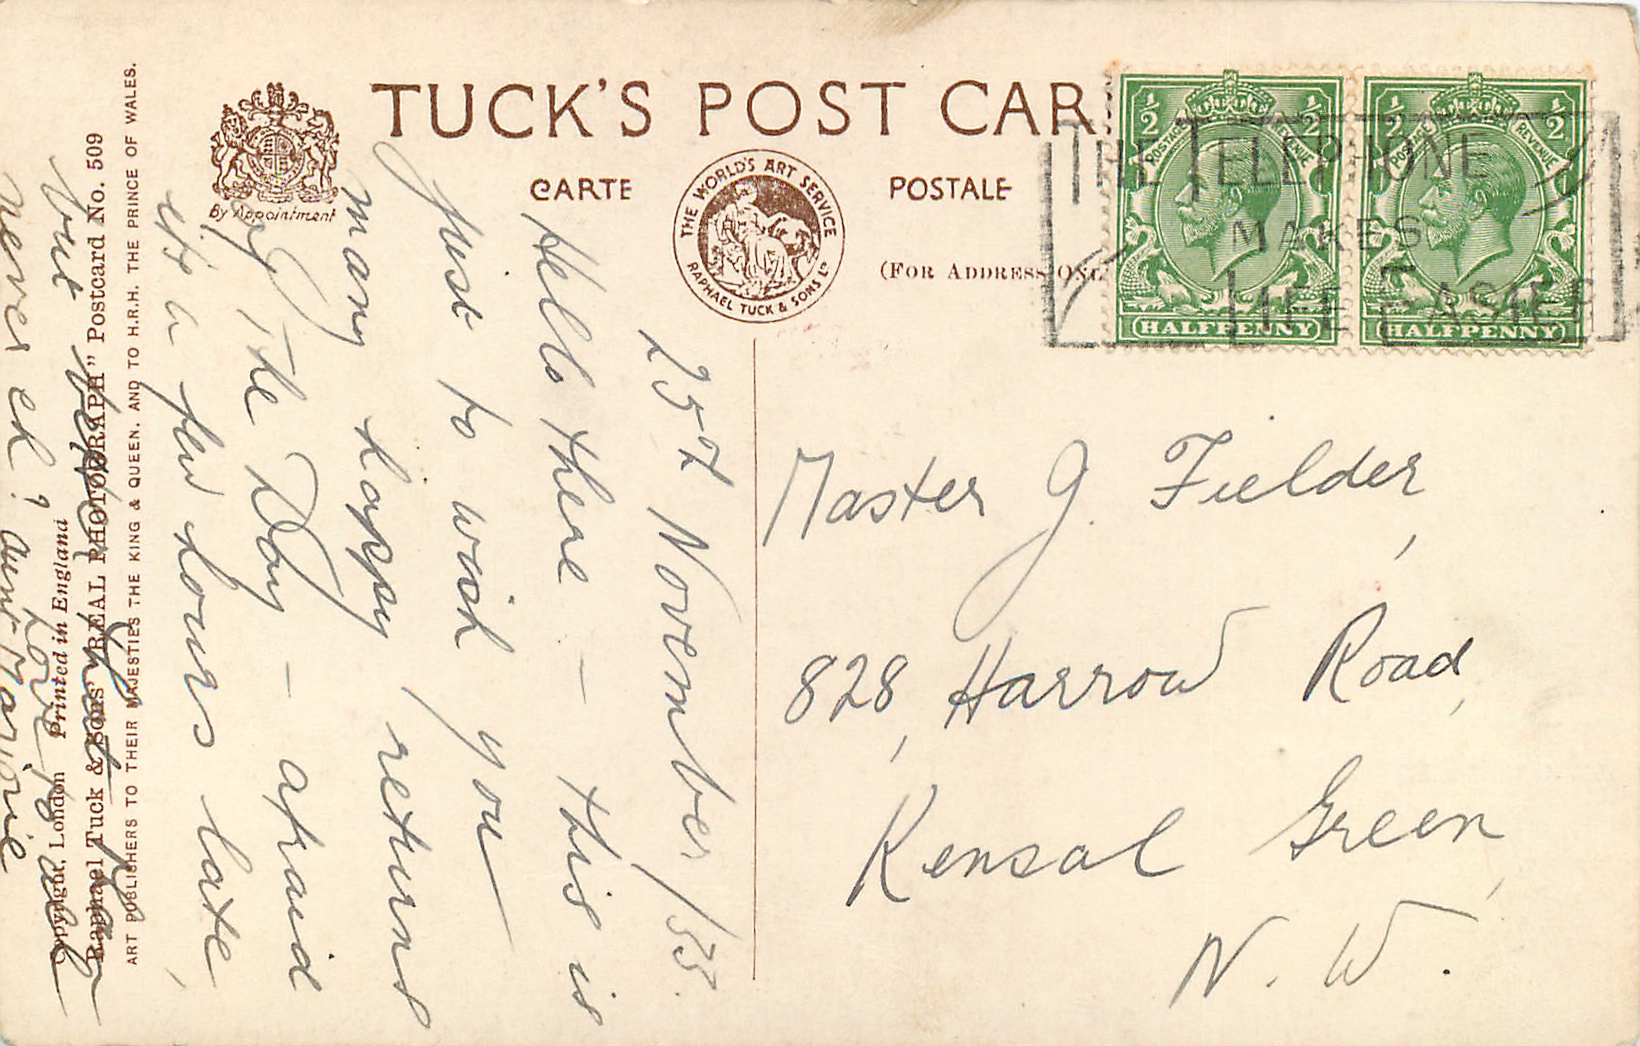 TUCK'S POST CAR
CARTE POSTALE
(FOR ADDRESS ONL
By Appointment
THE WORLD'S ART SERVICE
RAPHAEL TUCK & SONS LD
½ ½
POSTAGE REVENUE
HALFPENNY
½ ½
POSTAGE REVENUE
HALFPENNY
THE TELEPHONE
MAKES
LIFE EASIER
25th November/33.
Hello there – this is
just to wish you
many happy returns
of the Day – afraid
its a few hours late,
but better late than
never eh? Love to all
Aunt Marjorie
Master J. Fielder,
828, Harrow Road,
Kensal Green,
N. W.
ART PUBLISHERS TO THEIR MAJESTIES THE KING & QUEEN, AND TO H.R.H. THE PRINCE OF WALES.
Raphael Tuck & Sons' "REAL PHOTOGRAPH" Postcard No. 509
Copyright, London Printed in England